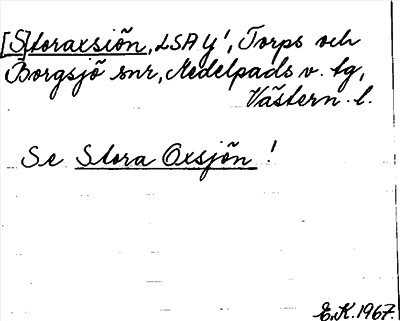 [S]toraxsiön, LSA y', Torps och
Borgsjö snr, Medelpads v. tg,
Västern. l.
Se Stora Oxsjön!
E.K. 1967.